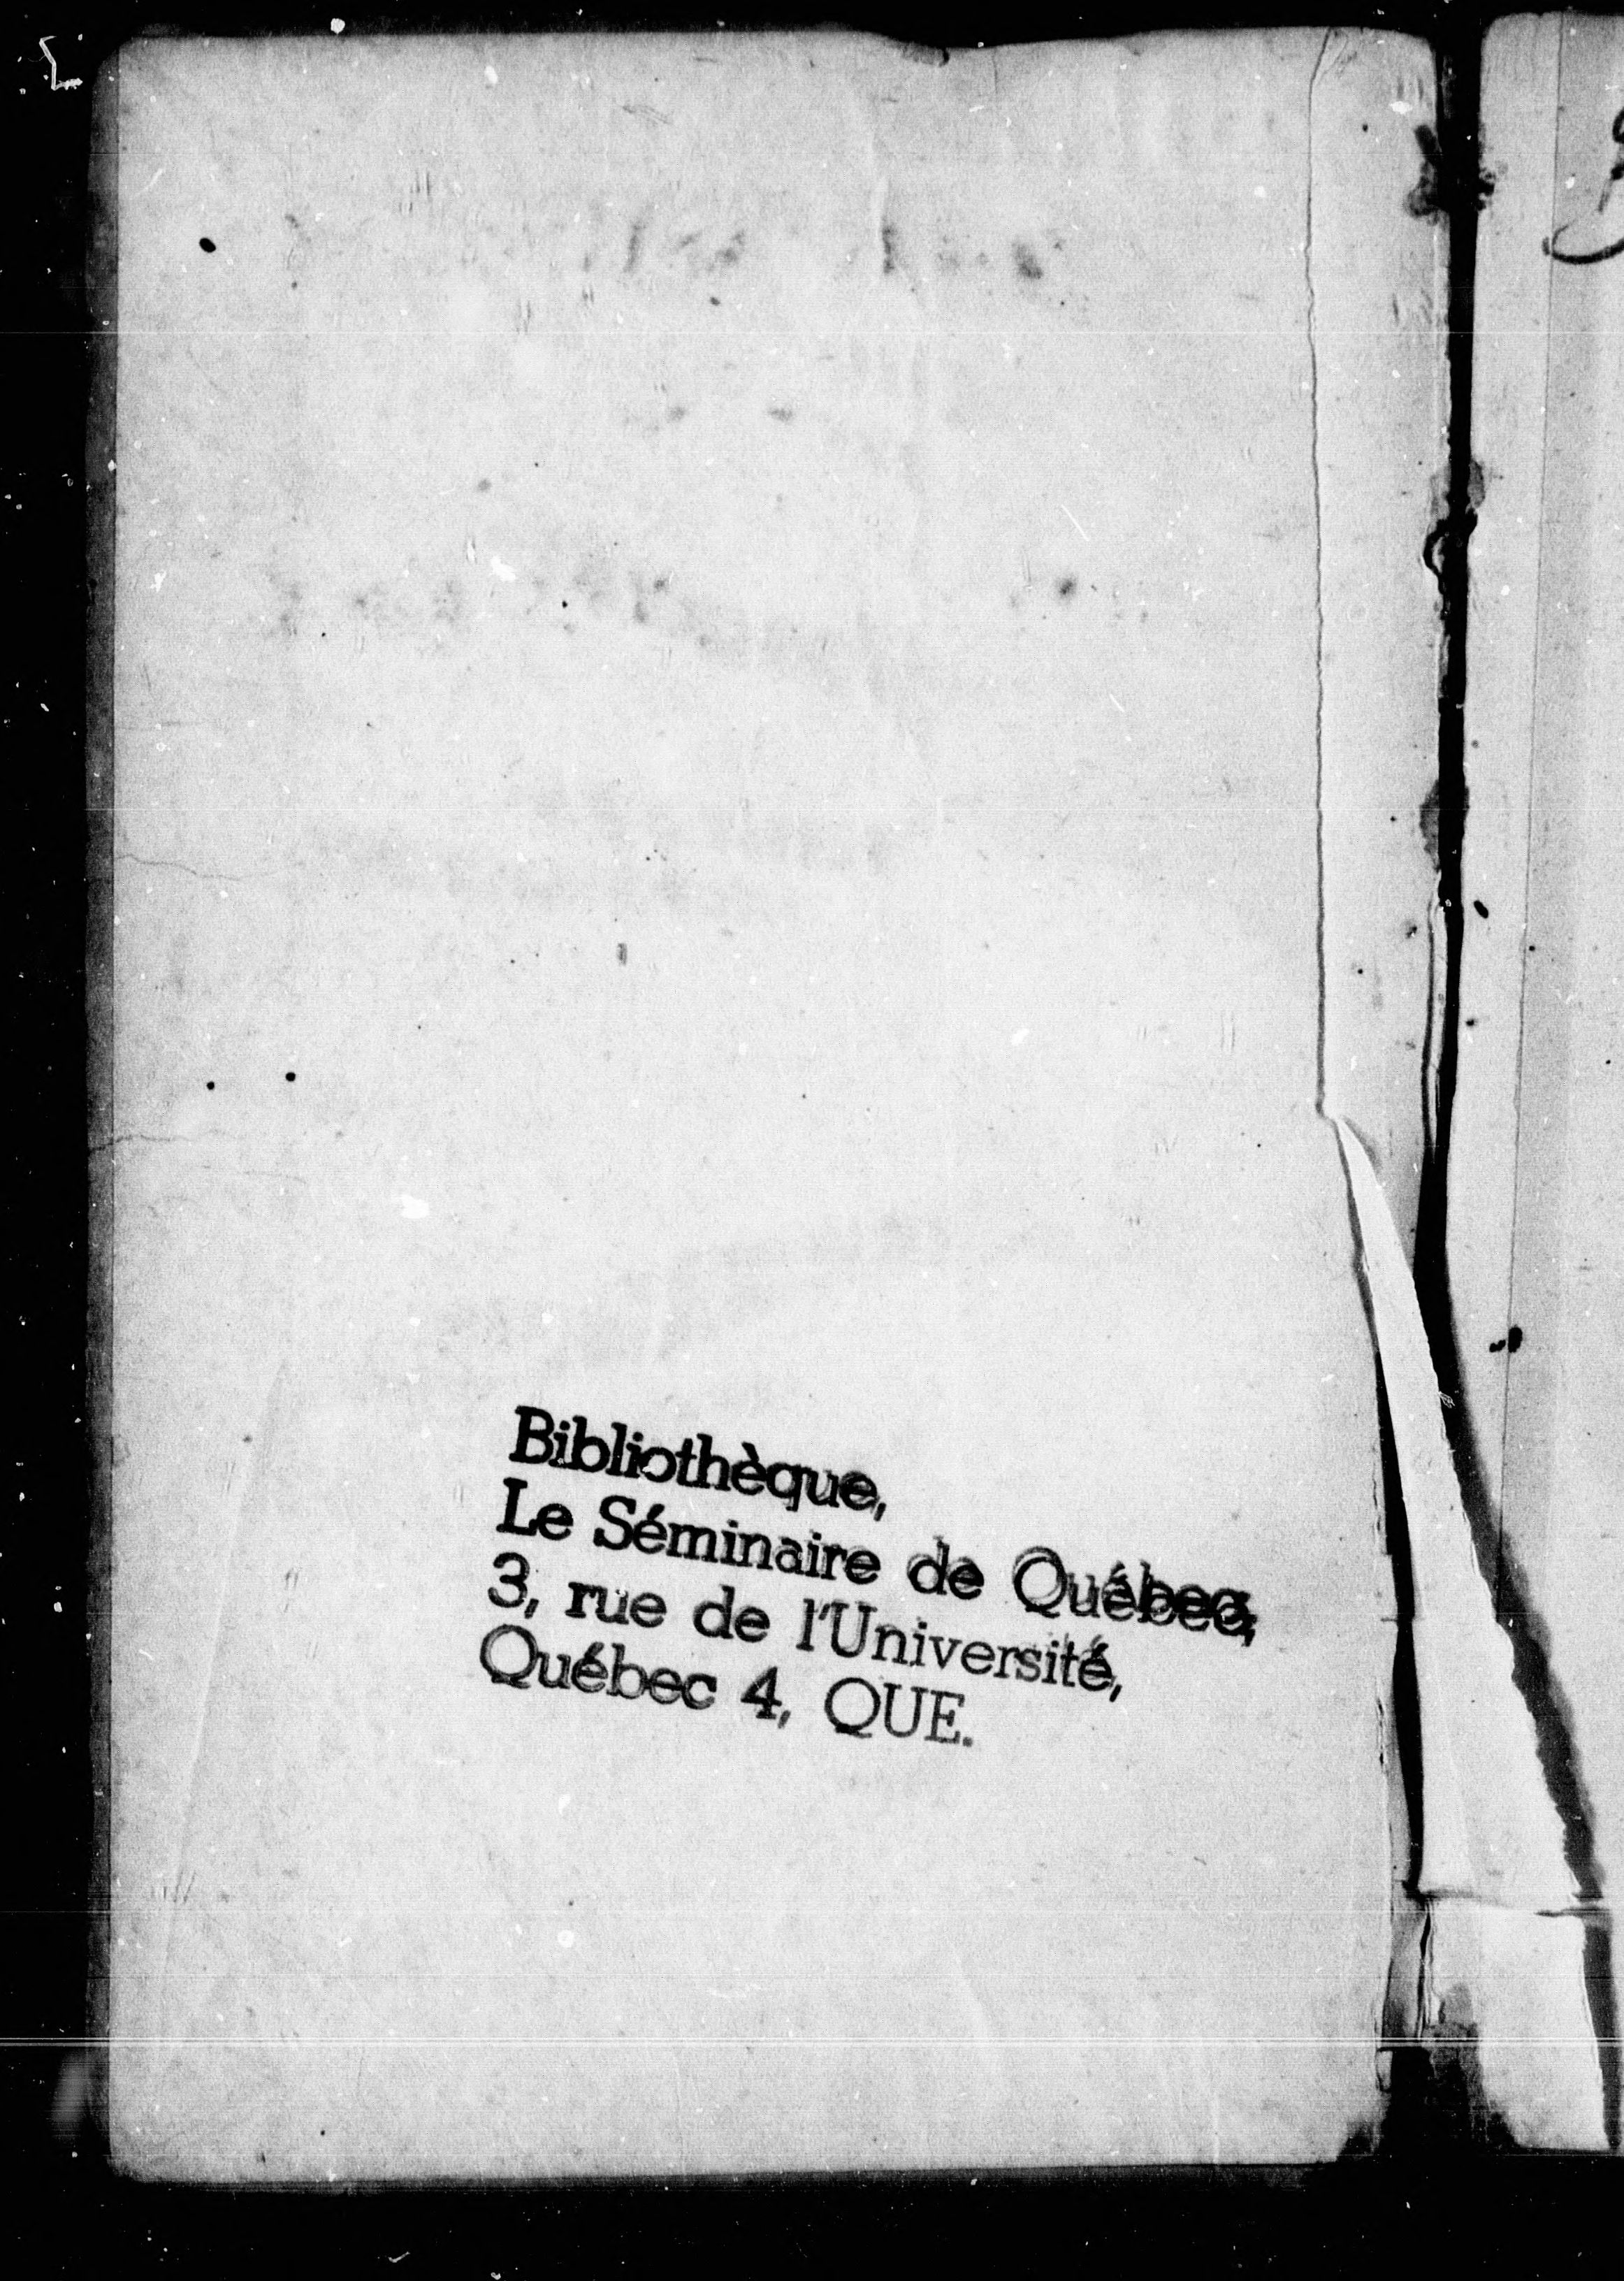 Bibliothèque,
Le Séminaire de Québec,
3, rue de l'Université,
Québec 4, QUE.